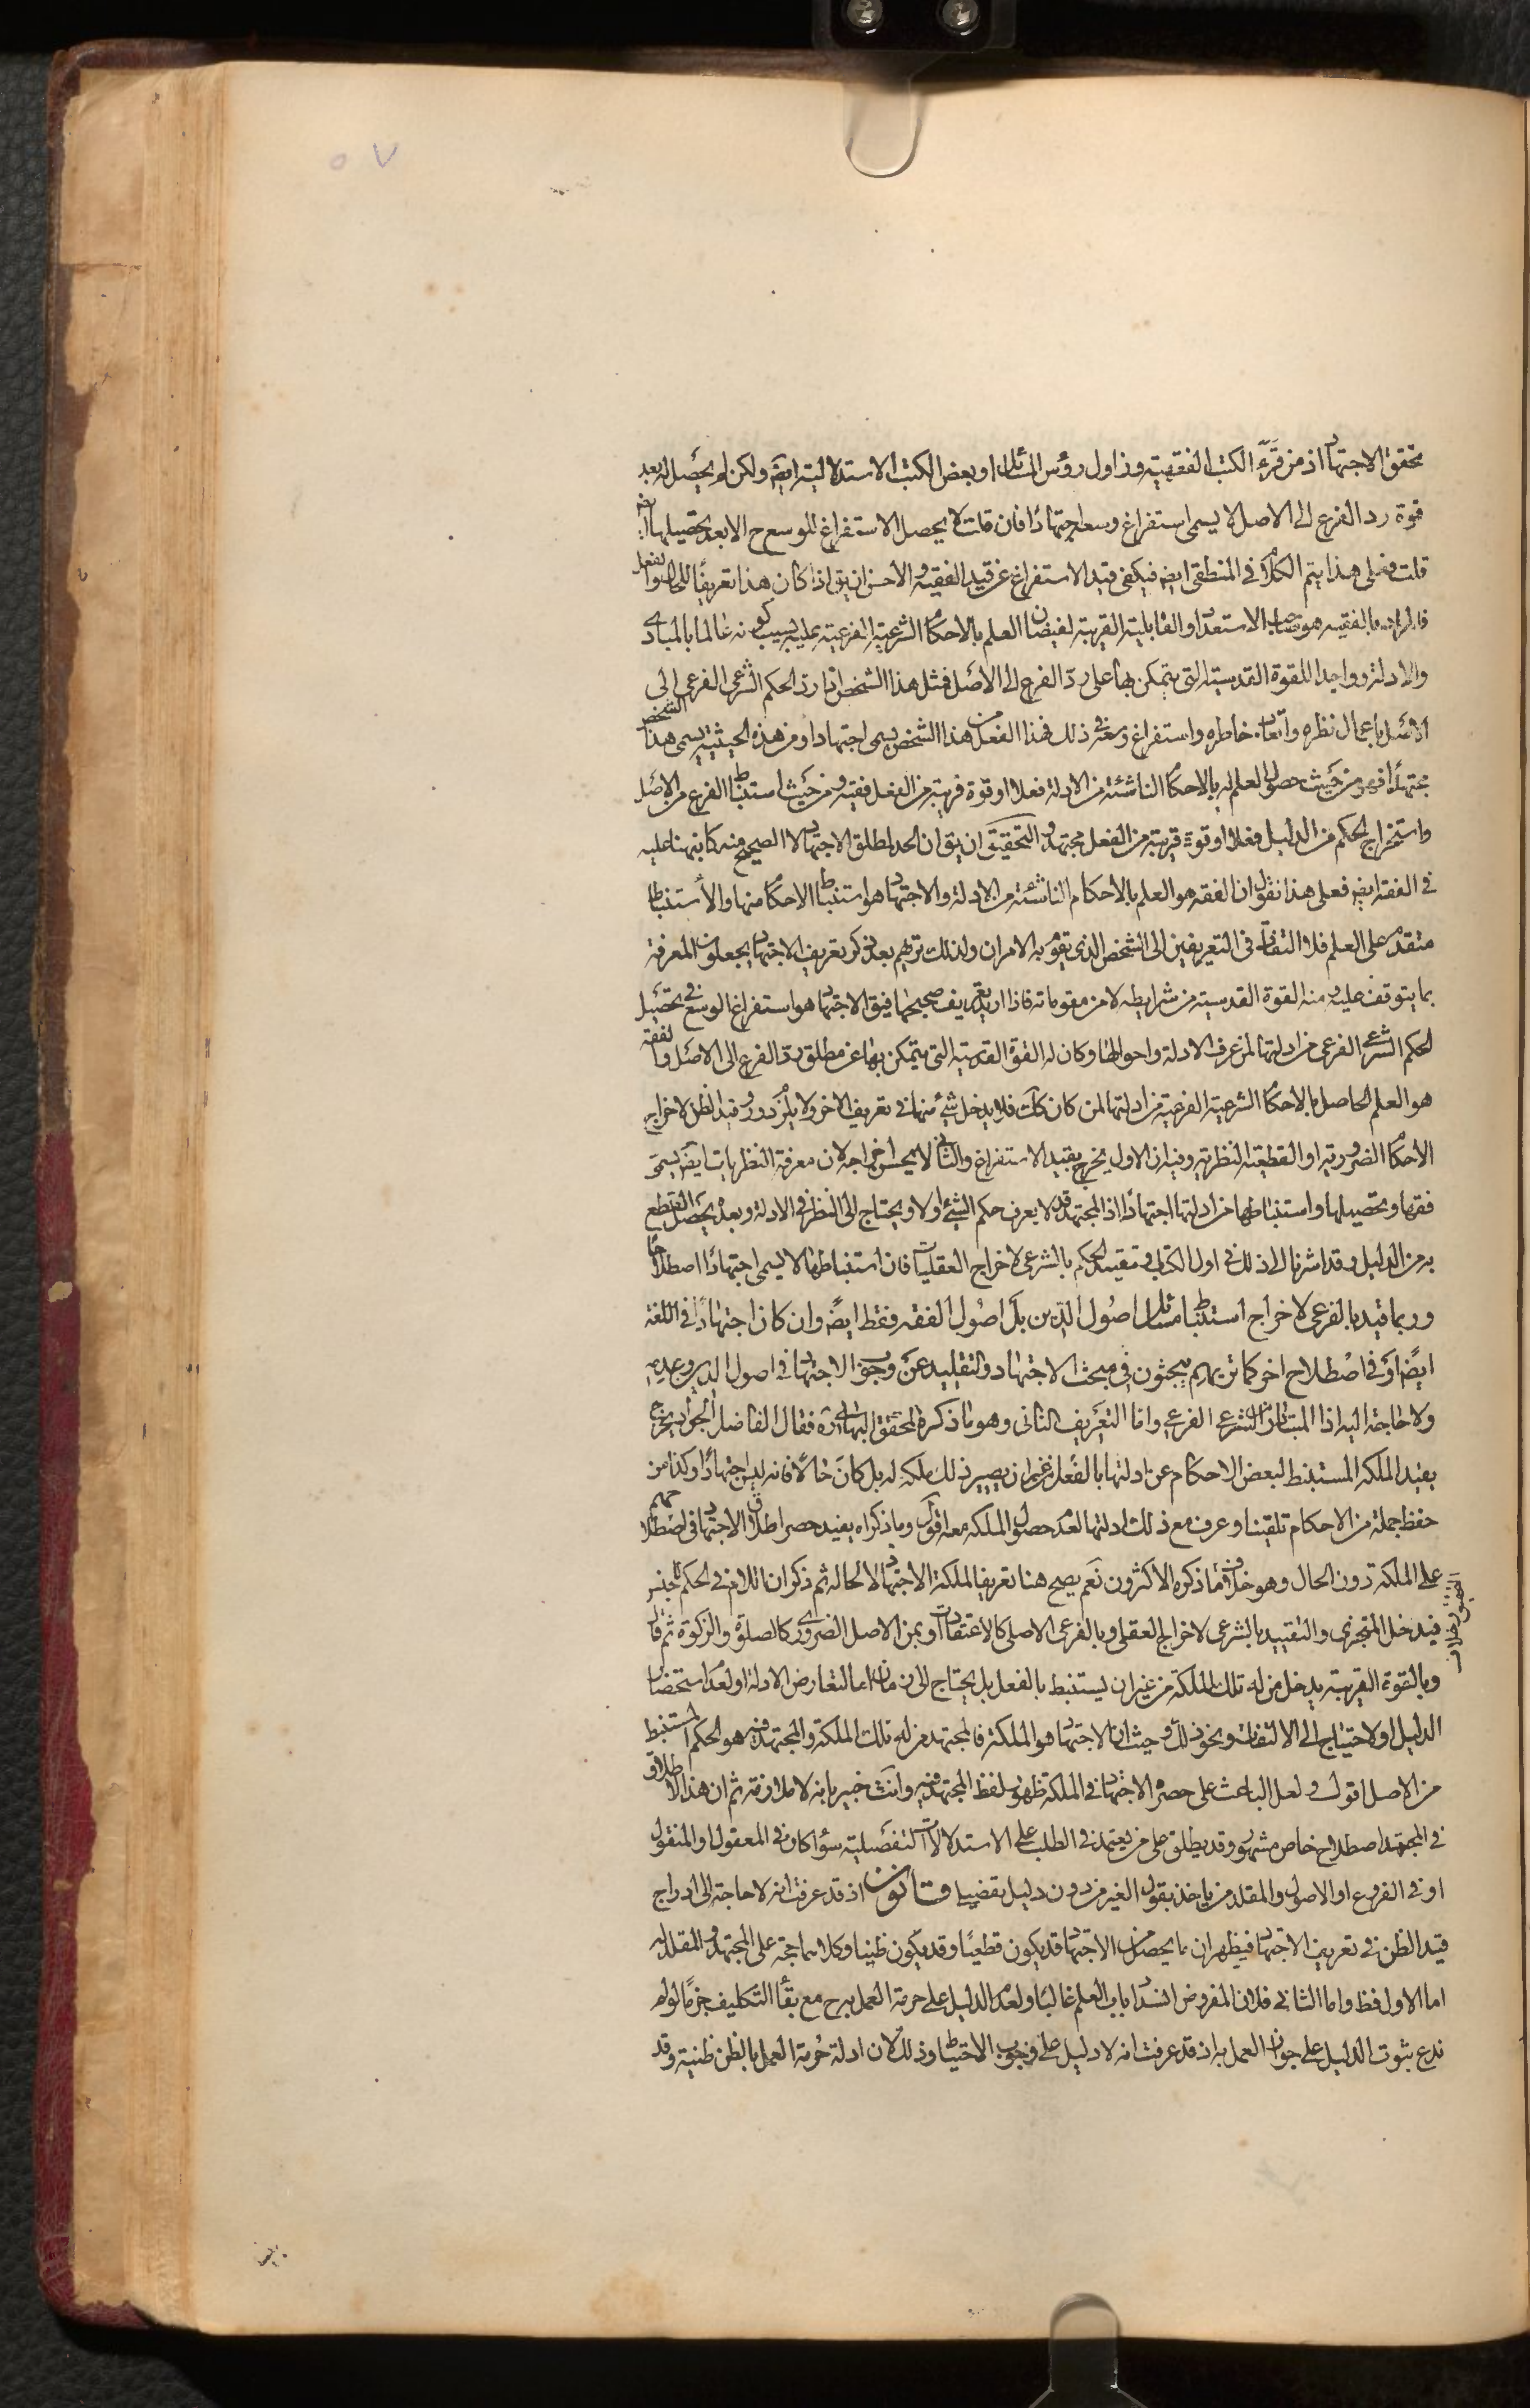 ٥٧
تحقق الاجتهاد اذ من قرء الكتب الفقهية وزاول رؤس المسائل او بعض الكتب الاستدلالية ايضا ولكن لم يحصل له بعد
قوة رد الفرع الى الاصل لا يسمى استفراغ وسعه اجتهادا فان قلت لا يحصل الاستفراغ للوسع ح الا بعد تحصيلها ايضا
قلت فعلى هذا يتم الكلام في المنطقى ايضا فيكفى قيد الاستفراغ عن قيد الفقيه والاحسن ان يق اذا كان هذا تعريفا للحال والفعل
فالمراد بالفقيه هو صاحب الاستعداد والقابلية القريبة لفيضان العلم بالاحكام الشرعية الفرعية عليه بسبب كونه عالما بالمبادى
والادلة وواجدا للقوة القدسية التى يتمكن بها على رد الفرع الى الاصل فمثل هذا الشخص اذا رد الحكم الشرعى الفرعى الى
الاصل باعمال نظره واتعاب خاطره واستفراغ وسعه في ذلك فهذا الفعل من هذا الشخص يسمى اجتهادا ومن هذه الحيثية يسمى هذا الشخص
مجتهدا فهو من حيث حصول العلم له بالاحكام الناشئة من الادلة فعلا او قوة قريبة من الفعل فقيه ومن حيث استنباط الفرع من الاصل
واستخراج الحكم من الدليل فعلا او قوة قريبة من الفعل مجتهد والتحقيق ان يق ان الحد لمطلق الاجتهاد لا الصحيح منه كما نبهنا عليه
في الفقه ايضا فعلى هذا نقول ان الفقه هو العلم بالاحكام الناشئة من الادلة والاجتهاد هو استنباط الاحكام منها والاستنباط
متقدم على العلم فلا التفات في التعريفين الى الشخص الذى يقوم به الامران ولذلك تريهم بعد ذكر تعريف الاجتهاد يجعلون المعرفة
بما يتوقف عليه منه القوة القدسية من شرايطه لا من مقوماته فاذا اريد تعريف صحيحها فيق الاجتهاد هو استفراغ الوسع في تحصيل
الحكم الشرعى الفرعى من ادلتها لمن عرف الادلة واحوالها وكان له القوة القدسية التى يتمكن بها عن مطلق رد الفرع الى الاصل والفقه
هو العلم الحاصل بالاحكام الشرعية الفرعية من ادلتها لمن كان كك فلا يدخل شئ منها في تعريف الاخر ولا يلزم دور وقيد الظن لاخراج
الاحكام الضرورية او القطعية النظرية وفيه ان الاول يخرج بقيد الاستفراغ والثانى لا يحسن اخراجه لان معرفة النظريات ايضا يسمى
فقها وتحصيلها واستنباطها من ادلتها اجتهادا اذ المجتهد قد لا يعرف حكم الشئ اولا ويحتاج الى النظر في الادلة وبعده يحصل القطع
به من الدليل وقد اشرنا الى ذلك في اول الكتاب وتقييد الحكم بالشرعى لاخراج العقليات فان استنباطها لا يسمى اجتهادا اصطلاحا
وربما قيد بالفرعى لاخراج استنباط مسائل اصول الدين بل اصول الفقه فقط ايضا وان كان اجتهادا في اللغة
ايضا او في اصطلاح اخر كما تريهم يبحثون في مبحث الاجتهاد والتقليد عن وجوب الاجتهاد في اصول الدين وعدمه
ولا حاجة اليه اذا المتبادر من الشرعى الفرعى واما التعريف الثانى وهو ما ذكره المحقق البهائى ره فقال الفاضل الجواد يخرج
بقيد الملكه المستنبط لبعض الاحكام عن ادلتها بالفعل من غير ان يصير ذلك ملكه له بل كان حالا فانه ليس اجتهادا وكذا من
حفظ جملة من الاحكام تلقينا وعرف مع ذلك ادلتها لعدم حصول الملكه معه اقول وما ذكراه يفيد حصر اطلاق الاجتهاد في اصطلاحهم
على الملكة دون الحال وهو خلاف ما ذكره الاكثرون نعم يصح هنا تعريفا لملكة الاجتهاد لا لحاله ثم ذكر ان اللام في الحكم للجنس
فيدخل المتجزى والتقييد بالشرعى لاخراج العقلى وبالفرعى الاصلى كالاعتقادات وبمن الاصل الضرورى كالصلوة والزكوة ثم قال
وبالقوة القريبة يدخل من له تلك الملكة من غير ان يستنبط بالفعل بل يحتاج الى زمان اما لتعارض الادلة او لعدم استحضار
الدليل او لاحتياج الى الالتفات ونحو ذلك وحيث ان الاجتهاد هو الملكة فالمجتهد من له تلك الملكة والمجتهد فيه هو الحكم المستنبط
من الاصل اقول ولعل الباعث على حصره الاجتهاد في الملكة ظهور لفظ المجتهد فيه وانت خبير بانه لا ملازمة ثم ان هذا الاطلاق
في المجتهد اصطلاح خاص مشهور وقد يطلق على من يعتمد في الطلب على الاستدلالات التفصيلية سواء كان في المعقول او المنقول
او في الفروع او الاصول والمقلد من ياخذ بقول الغير من دون دليل تفصيلى قانون اذ قد عرفت انه لا حاجة الى ادراج
قيد الظن في تعريف الاجتهاد فيظهر ان ما يحصل من الاجتهاد قد يكون قطعيا وقد يكون ظنيا وكلاهما حجة على المجتهد والمقلد له
اما الاول فظ واما الثانى فلان المفروض انسداد باب العلم غالبا ولعدم الدليل على حرمة العمل به ح مع بقاء التكليف جزما لو لم
ندع ثبوت الدليل على جواز العمل به اذ قد عرفت انه لا دليل على وجوب الاحتياط وذلك لان ادلة حرمة العمل بالظن ظنية وقد